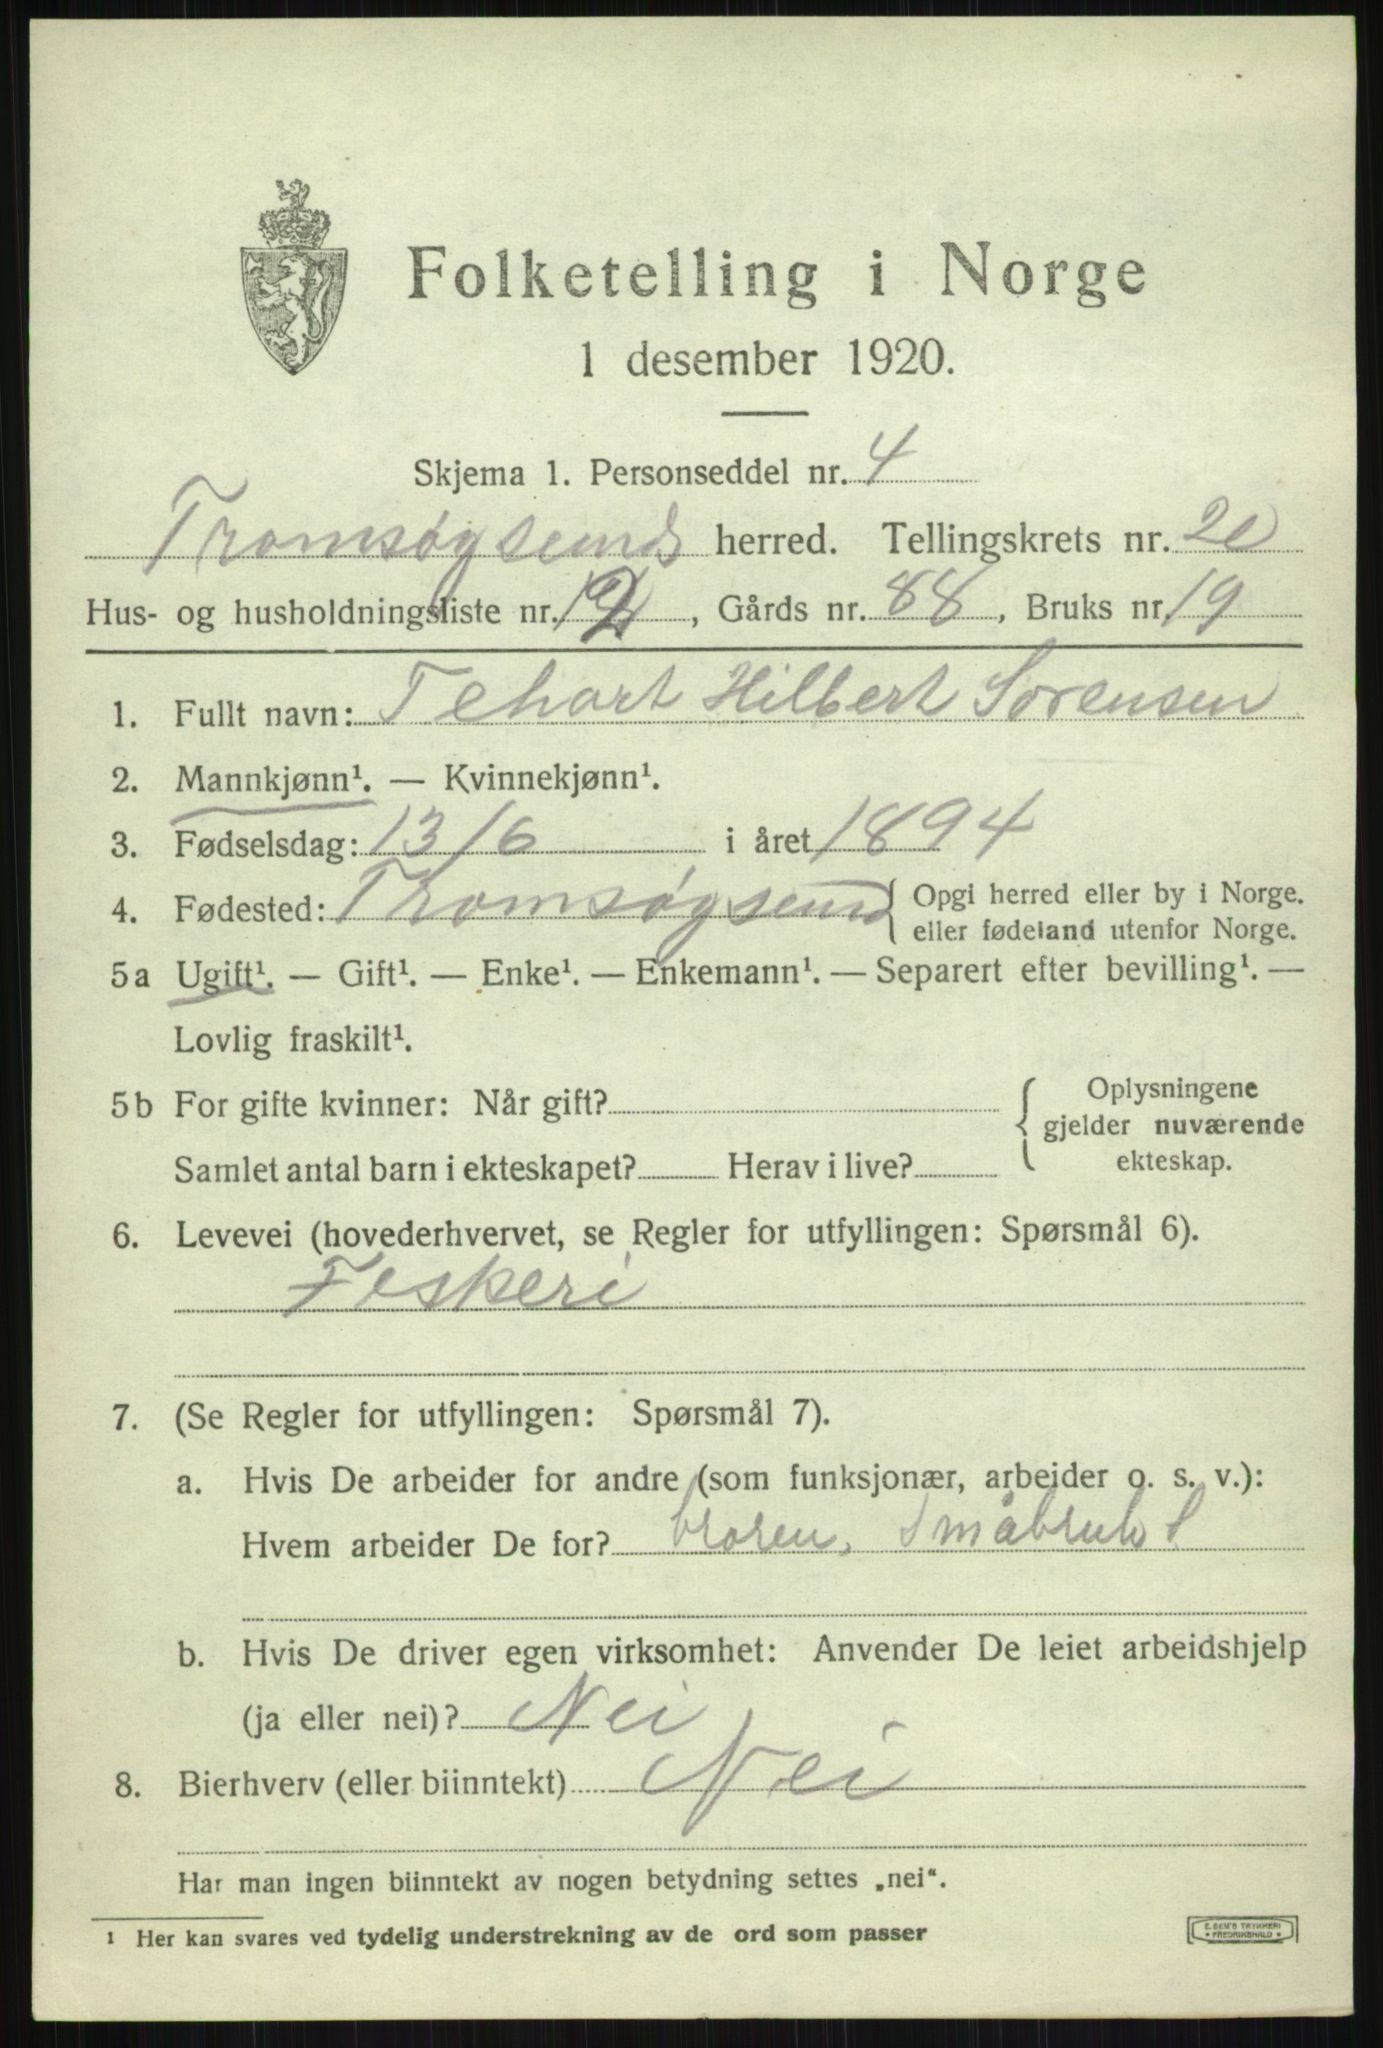 Folketelling i Norge
1 desember 1920.
Skjema 1. Personseddel nr. 4
Tromsøysund herred. Tellingskrets nr. 20
Hus- og husholdningsliste nr. 12, Gårds nr. 88, Bruks nr 19
1. Fullt navn: Tehart Hilbert Sørensen
2. Mannkjønn¹. — Kvinnekjønn¹.
3. Fødselsdag: 13/6 i året 1894
4. Fødested: Tromsøysund { Opgi herred eller by i Norge.
eller fødeland utenfor Norge.
5a Ugift¹. — Gift¹. — Enke¹. — Enkemann¹. — Separert efter bevilling¹. —
Lovlig fraskilt¹.
5b For gifte kvinner: Når gift? { Oplysningene
gjelder nuværende
Samlet antal barn i ekteskapet? Herav i live? ekteskap.
6. Levevei (hovederhvervet, se Regler for utfyllingen: Spørsmål 6).
Feskeri
7. (Se Regler for utfyllingen: Spørsmål 7).
a. Hvis De arbeider for andre (som funksjonær, arbeider o. s. v.):
Hvem arbeider De for? broren,
b. Hvis De driver egen virksomhet: Anvender De leiet arbeidshjelp
(ja eller nei)? Nei
8. Bierhverv (eller biinntekt) Nei
Har man ingen biinntekt av nogen betydning settes „nei“.
1 Her kan svares ved tydelig understrekning av de ord som passer
E. SEM'S TRYKKERI
* FREDRIKSHALD *